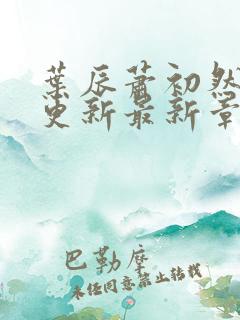 葉辰蕭初然
更新最新章
巴勒摩
未经同意禁止转载